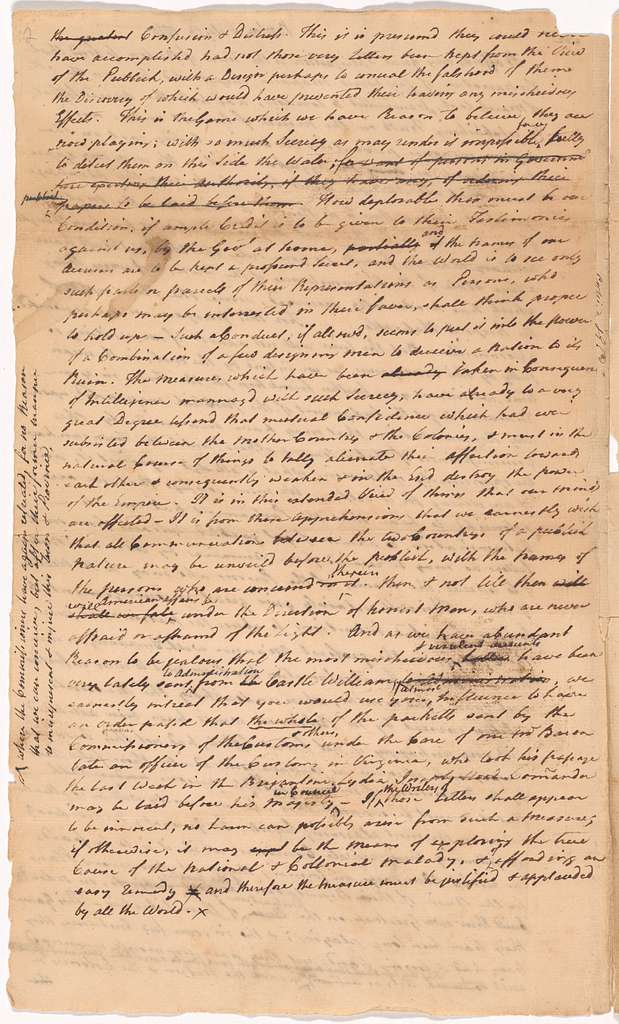 the greatest Confusion & Distress. This is is presumd they could never
have accomplishd had not those very Letters been kept from the View
of the Publick, with a Design perhaps to conceal the falshood of them
the Discovery of which would have prevented their having any mischeivous
Effects. This is the Game which we have Reason to believe they are
now playing; with so much Secrecy as may render it impossible for us fully
to detect them on this Side the Water, for want of persons in Government
their authority, if they have any, of ordering their
publick
papers to be laid before them. How deplorable then must be our
Condition, if ample Credit is to be given to their Testimonies
against us, by the Govt at home, and if the Names of our
Accusers are to be kept a profound Secret, and the World is to see only
such parts or parcels of their Representations as Persons, who
perhaps may be interrested in their favor, shall think proper
to hold up – Such a Conduct, if allowd, seems to put it into the power
of a Combination of a few designing men to deceive a Nation to its
Ruin. The measures which have been already taken in Consequence
of Intilligence mannagd with such Secrecy, have already to a very
great Degree lessend that mutual Confidence which had ever
subsisted between the Mother Country & the Colonies, & must in the
natural Course of things totally alienate their affection towards
each other & consequently weaken & in the End destroy the power
of the Empire. It is in this extended View of things that our minds
are affected – It is from these Apprehensions that we earnestly wish
that all Communication between the two Countrys of a publick
Nature may be unveild before the publick, with the names of
the persons who are concernd in it therein. then & not till then will
will American affairs be
under the Direction of honest men, who are never
affraid or ashamd of the Light. And as we have abundant
Reason to be jealous that the most mischeivous & virulent accounts have been
very lately sent to Administration from Castle William, we
earnestly intreat that you would use your utmost Influence to have
an order passd that the whole of the packetts sent by the
Commissioners of the Customs & others under the Care of one Mr Bacon
late an officer of the Customs in Virginia, who took his passage
the last Week in the Brigantine Lydia, Joseph Wood Comander
may be laid before his Majesty in Council – If the Writers of those Letters shall appear
to be innocent, no harm can possibly arise from such a measure;
if otherwise, it may be the means of exploring the true
Cause of the National & Collonial malady, & of affording an
easy remedy and therefore the measure must be justified & applauded
by all the World. x
x where the Commissioners have again retreatd, for no Reason
that we can conceive, but after their former manner
to misrepresent & injure this Town & Province